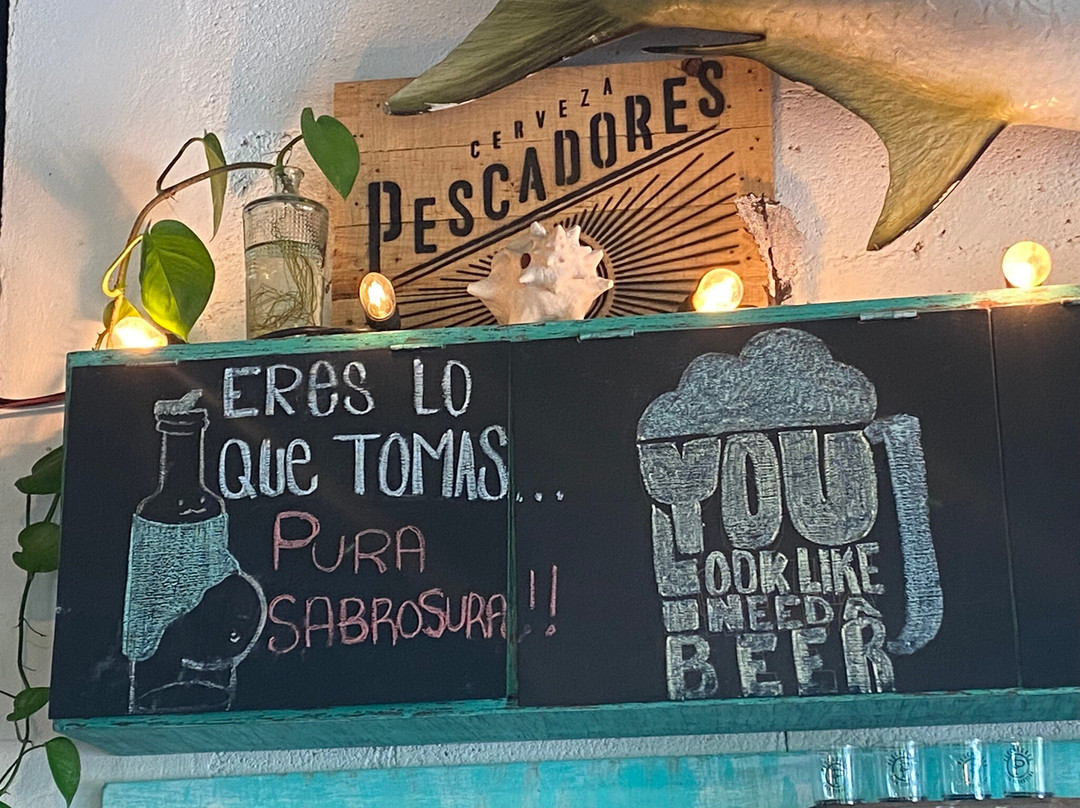 CERVEZA
PESCADORES
ERes LO
QUe TOMAS...
PURA
SABROSURA!!
YOU
LOOK LIKE
I NEED A
BEER